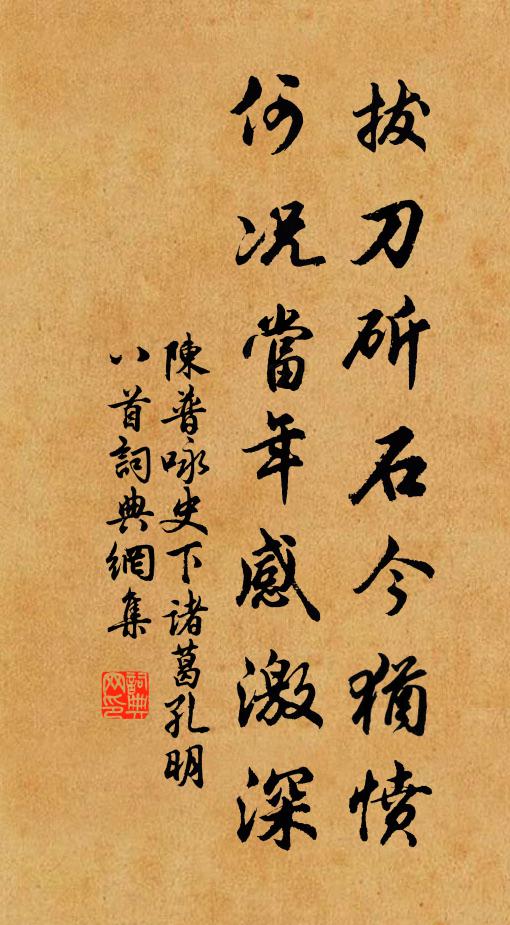 拔刀斫石今猶憤
何况當年感激深
陳普咏史下諸葛孔明
八首詞典網集
詞典網印